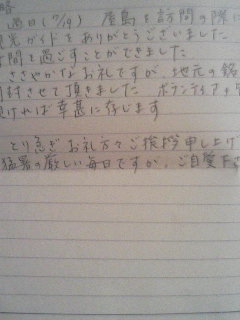 略
過日(7/19) 屋島を訪問の際に
光ガイドをありがとうございました
時間を過ごすことができました
ささやかなお礼ですが、地元の銘
同封させて頂きました ボランティア
頂ければ幸甚に存じます
とり急ぎお礼方々ご挨拶申し上げ
猛暑の厳しい毎日ですが、ご自愛下さ